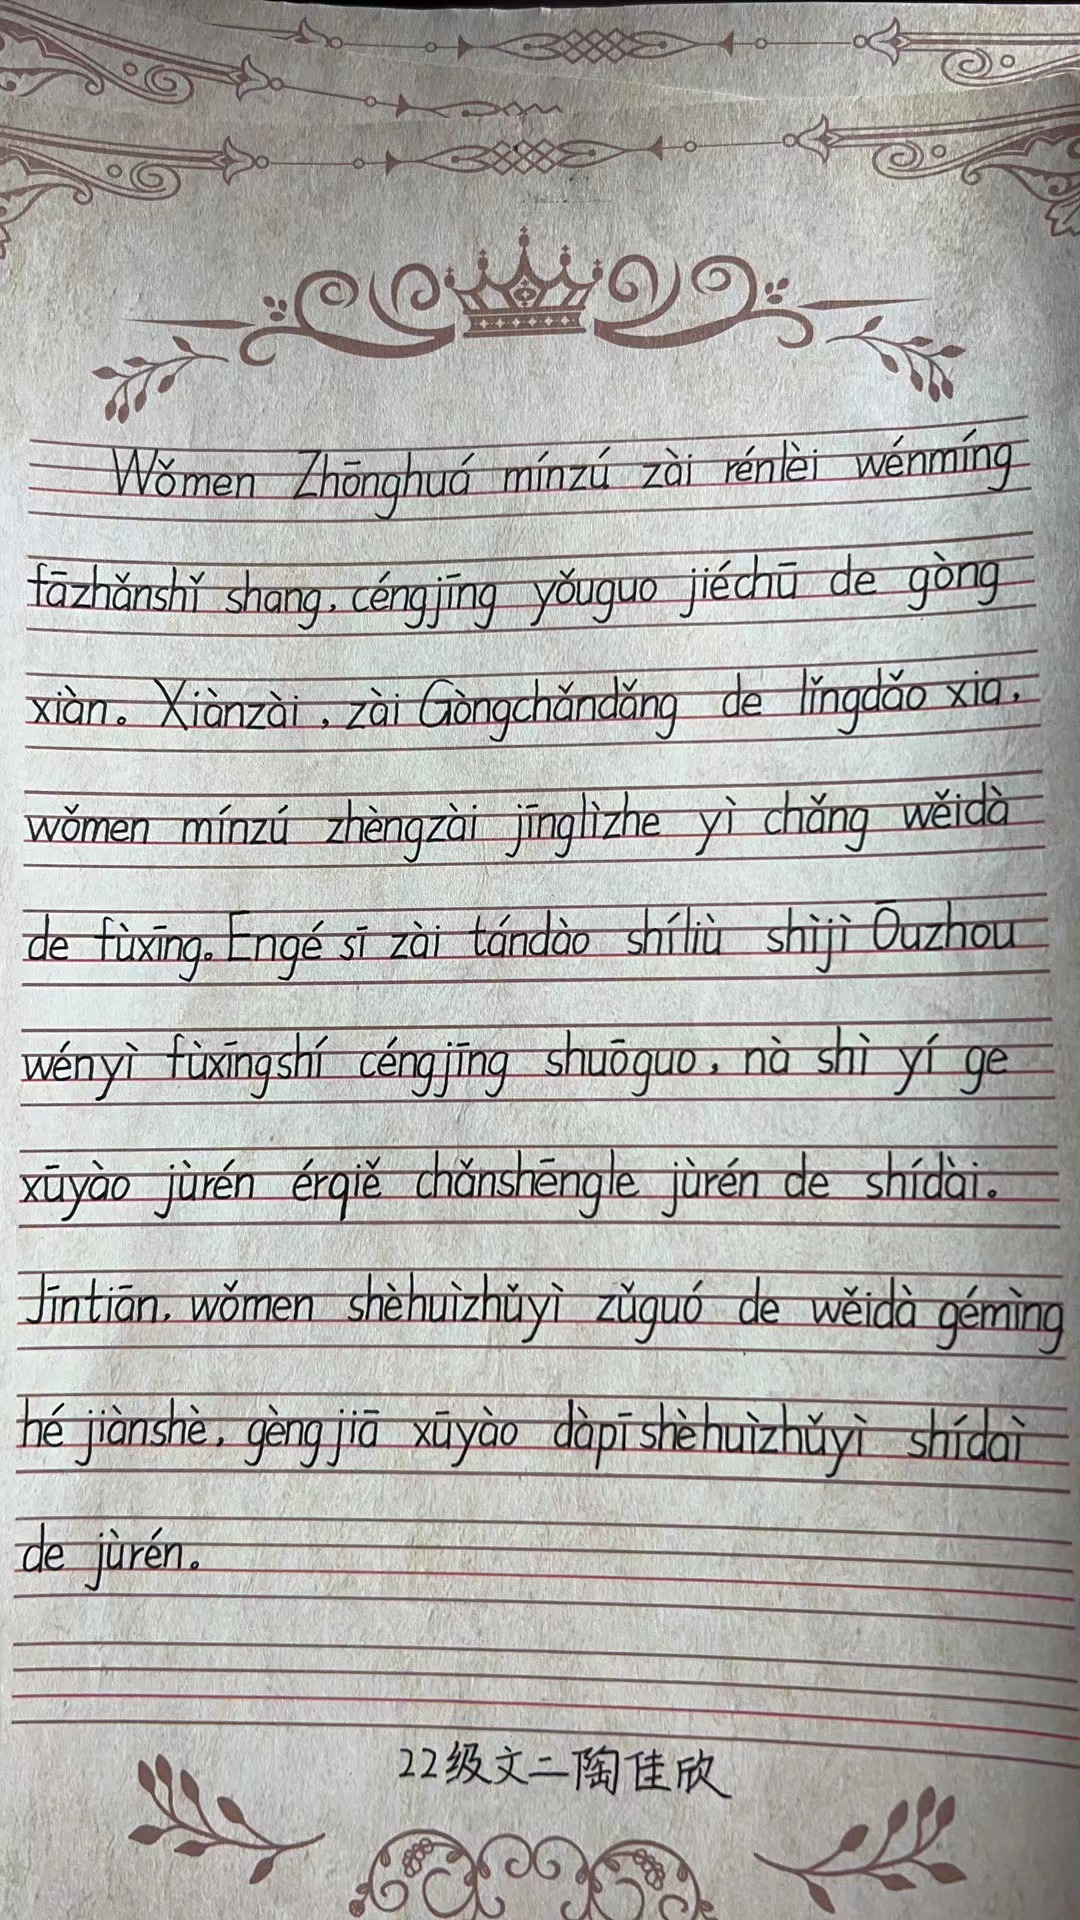 Wǒmen Zhōnghuá mínzú zài rénlèi wénmíng
fāzhǎnshǐ shang, céngjīng yǒuguo jiéchū de gòng
xiàn。Xiànzài, zài Gòngchǎndǎng de lǐngdǎo xia,
wǒmen mínzú zhèngzài jīnglìzhe yì chǎng wěidà
de fùxīng。Engé sī zài tándào shíliù shìjì Ōuzhou
wényì fùxīngshí céngjīng shuōguo, nà shì yí ge
xūyào jùrén érqiě chǎnshēngle jùrén de shídài。
Jīntiān, wǒmen shèhuìzhǔyì zǔguó de wěidà gémìng
hé jiànshè, gèngjiā xūyào dàpī shèhuìzhǔyì shídaì
de jùrén。
22级文二陶佳欣